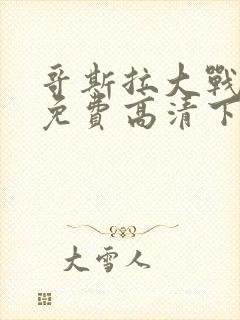 哥斯拉大戰
免費高清下
大雪人